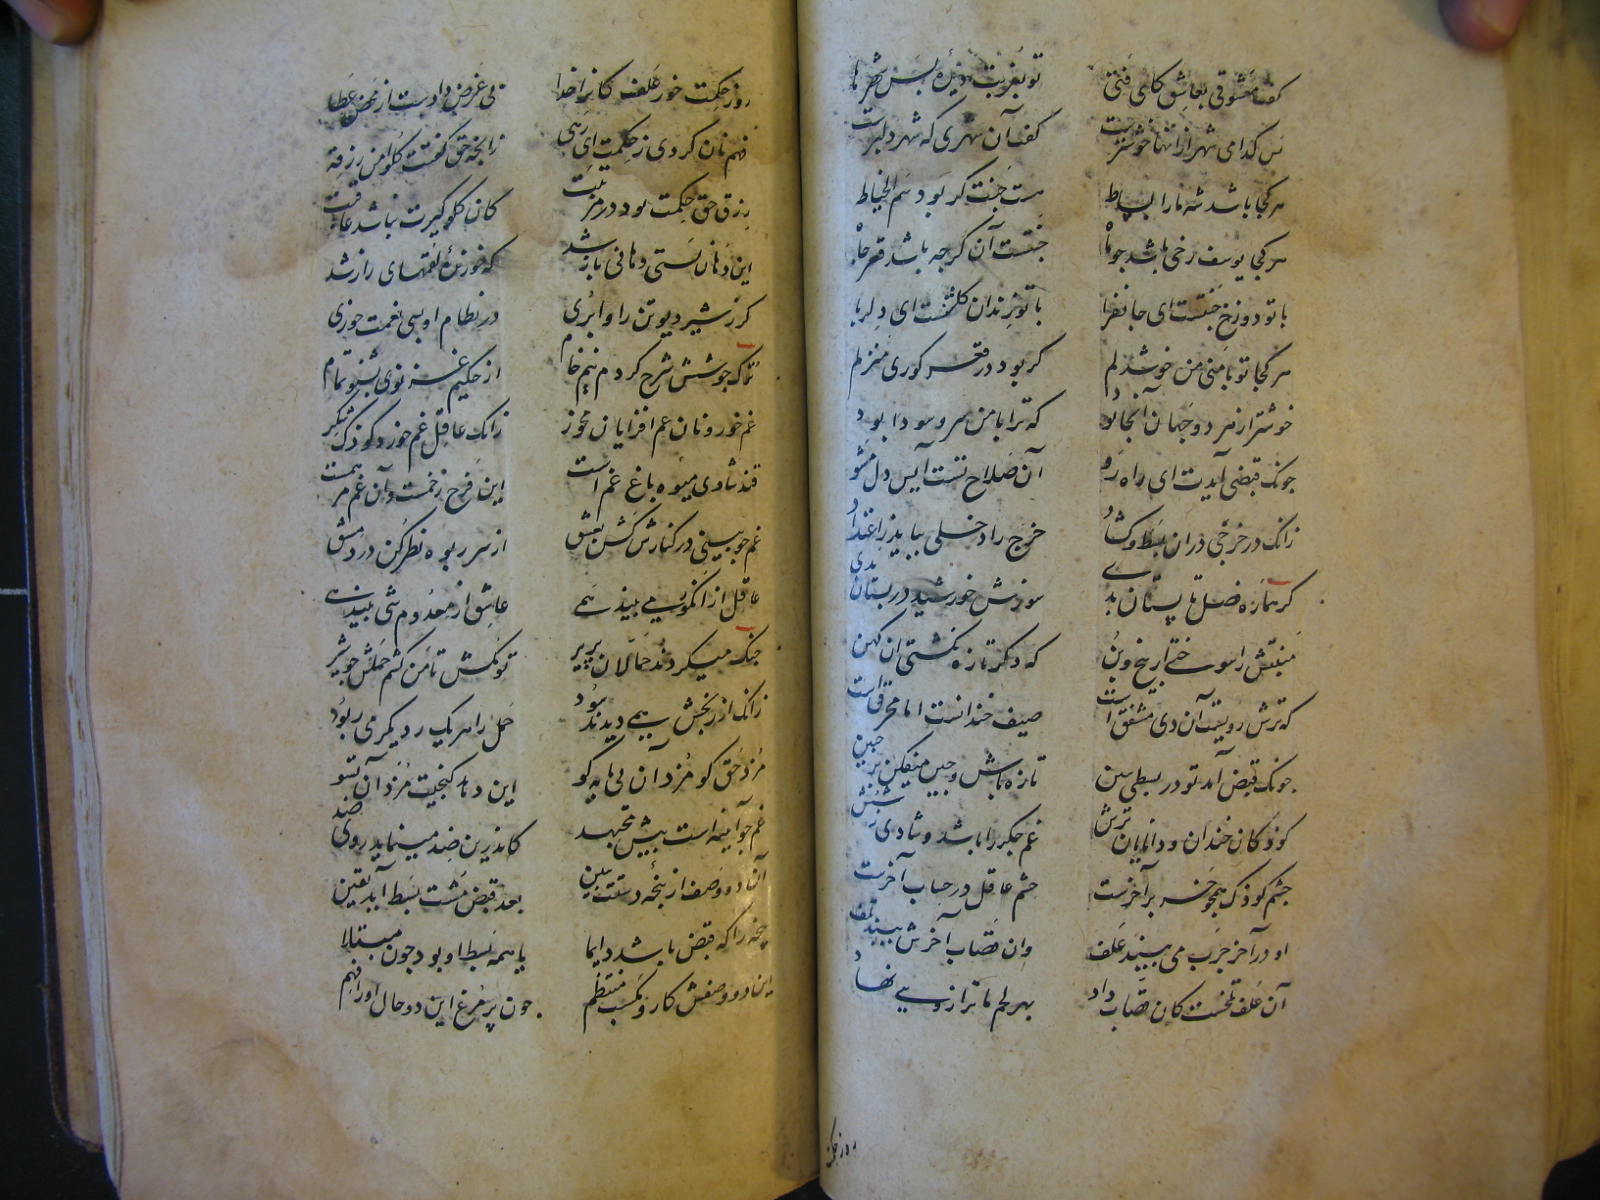 گفت معشوقی بعاشق کای فتی تو بغربت دیدهٔ بس شهرها
پس کدامی شهر ازانها خوشترست گفت آن شهری که شهر دلبرست
هر کجا باشد شه ما را بساط هست جنت گر بود سم الخیاط
هر کجا یوسف رخی باشد چو ماه جنتست آن گرچه باشد قعر چاه
با تو دوزخ جنتست ای جانفزا با تو زندان گلشنست ای دلربا
هر کجا تو با منی من خوشدلم گر بود در قعر گوری منزلم
خوشتر از هر دو جهان آنجا بود که ترا با من سر و سودا بود
چونک قبضی آیدت ای راه رو آن صلاح تست آیس دل مشو
زانک در خرجی دران بسط و گشاد خرج را دخلی بباید زاعتداد
گر هماره فصل تابستان بدی سوزش خورشید در بستان بدی
منبتش را سوختی از بیخ و بن که دگر تازه نگشتی ان کهن
گر ترش رویست آن دی مشفق است صیف خندانست اما محرق است
چونک قبض آمد تو در بسطی ببین تازه باش و چین میفکن بر جبین
کودکان خندان و دانایان ترش غم جگر را باشد و شادی ز شش
چشم کودک همچو خر بر آخرست چشم عاقل در حساب آخرست
او در آخر چرب می بیند علف وان قصاب آخرش بیند تلف
آن علف تلخست کان قصاب داد بهر لحم ما ترازویی نهاد
روز حکمت
رو ز حکمت خور علف کانرا خدا بی غرض دادست از محض عطا
فهم نان کردی نه حکمت ای رهی زانچه حق گفتت کلوا من رزقه
رزق حق حکمت بود در مرتبت کان گلوگیرت نباشد عاقبت
این دهان بستی دهانی باز شد که خورندهٔ لقمهای راز شد
گر ز شیر دیو تن را وابری در فطام او بسی نعمت خوری
ترک جوشش شرح کردم نیم خام از حکیم غزنوی بشنو تمام
غم خور و نان غم افزایان مخور زانک عاقل غم خورد کودک شکر
قند شادی میوه باغ غم است این فرح زخمست وآن غم مرهمست
غم چو بینی در کنارش کش بعشق از سر ربوه نظر کن در دمشق
عاقل از انگور می بیند همی عاشق از معدوم شی بیند همی
جنگ میکردند حمالان پریر تو مکش تا من کشم حملش چو شیر
زانک زان رنجش همی دیدند سود حمل را هر یک ز دیگر می ربود
مزد حق کو مزد آن بی مایه کو این دهد گنجیت مزد آن تسو
غم چو آینه است پیش مجتهد کاندرین ضد مینماید روی ضد
آن دو وصف از پنجه دستت ببین بعد قبض مشت بسط آید یقین
پنجه را گر قبض باشد دایما یا همه بسط او بود چون مبتلا
این دو وصفش کار و کسب منتظم چون پر مرغ این دو حال اورا مهم